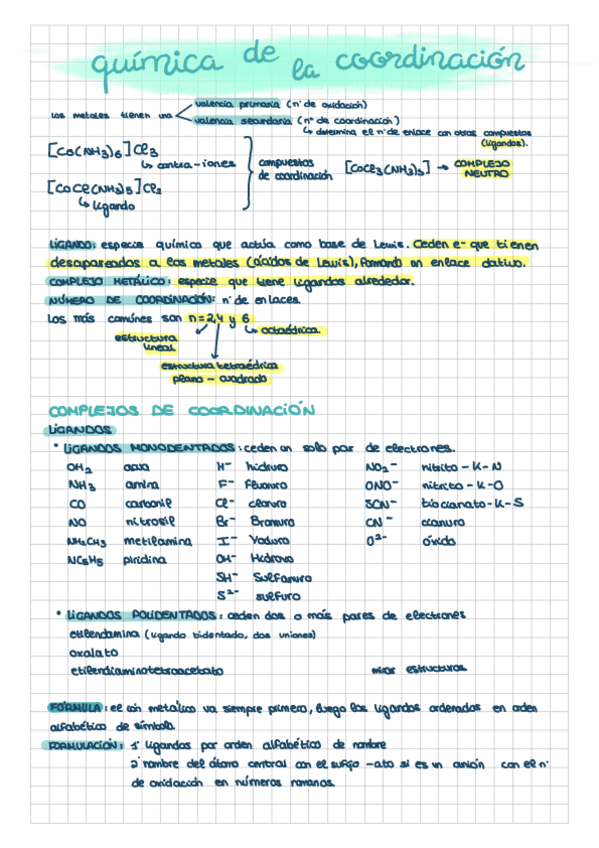 química de la coordinación
los metales tienen una
valencia primaria (nº de oxidación)
valencia secundaria (nº de coordinación)
↳ determina el nº de enlace con otros compuestos (ligandos).
[Co(NH3)6]Cl3
↳ contra-iones
[CoCl(NH3)5]Cl2
↳ ligando
compuestos
de coordinación
[CoCl3(NH3)3] → COMPLEJO
NEUTRO
LIGANDO: especie química que actúa como base de Lewis. Ceden e- que tienen
desapareados a los metales (ácidos de Lewis), formando un enlace dativo.
COMPLEJO METÁLICO: especie que tiene ligandos alrededor.
NÚMERO DE COORDINACIÓN: nº de enlaces.
Los más comúnes son n=2,4 y 6
↳ octaédrica.
estructura
lineal
estructura tetraédrica
plano - cuadrado
COMPLEJOS DE COORDINACIÓN
LIGANDOS
* LIGANDOS MONODENTADOS: ceden un solo par de electrones.
OH2 aqua H- hidruro NO2- nitrito-K-N
NH3 amina F- fluoruro ONO- nitrito-K-O
CO carbonil Cl- cloruro SCN- tiocianato-K-S
NO nitrosil Br- Bromuro CN- cianuro
NH2CH3 metilamina I- Yoduro O2- óxido
NC5H5 piridina OH- Hidroxo
SH- Sulfanuro
S2- sulfuro
* LIGANDOS POLIDENTADOS: ceden dos o más pares de electrones
etilendiamina (ligando bidentado, dos uniones)
oxalato
etilendiaminotetraacetato mirar estructuras
FÓRMULA: el ión metálico va siempre primero, luego los ligandos ordenados en orden
alfabético de símbolo
FORMULACIÓN: 1º ligandos por orden alfabético de nombre
2º nombre del átomo central con el sufijo -ato si es un anión con el nº
de oxidación en números romanos.